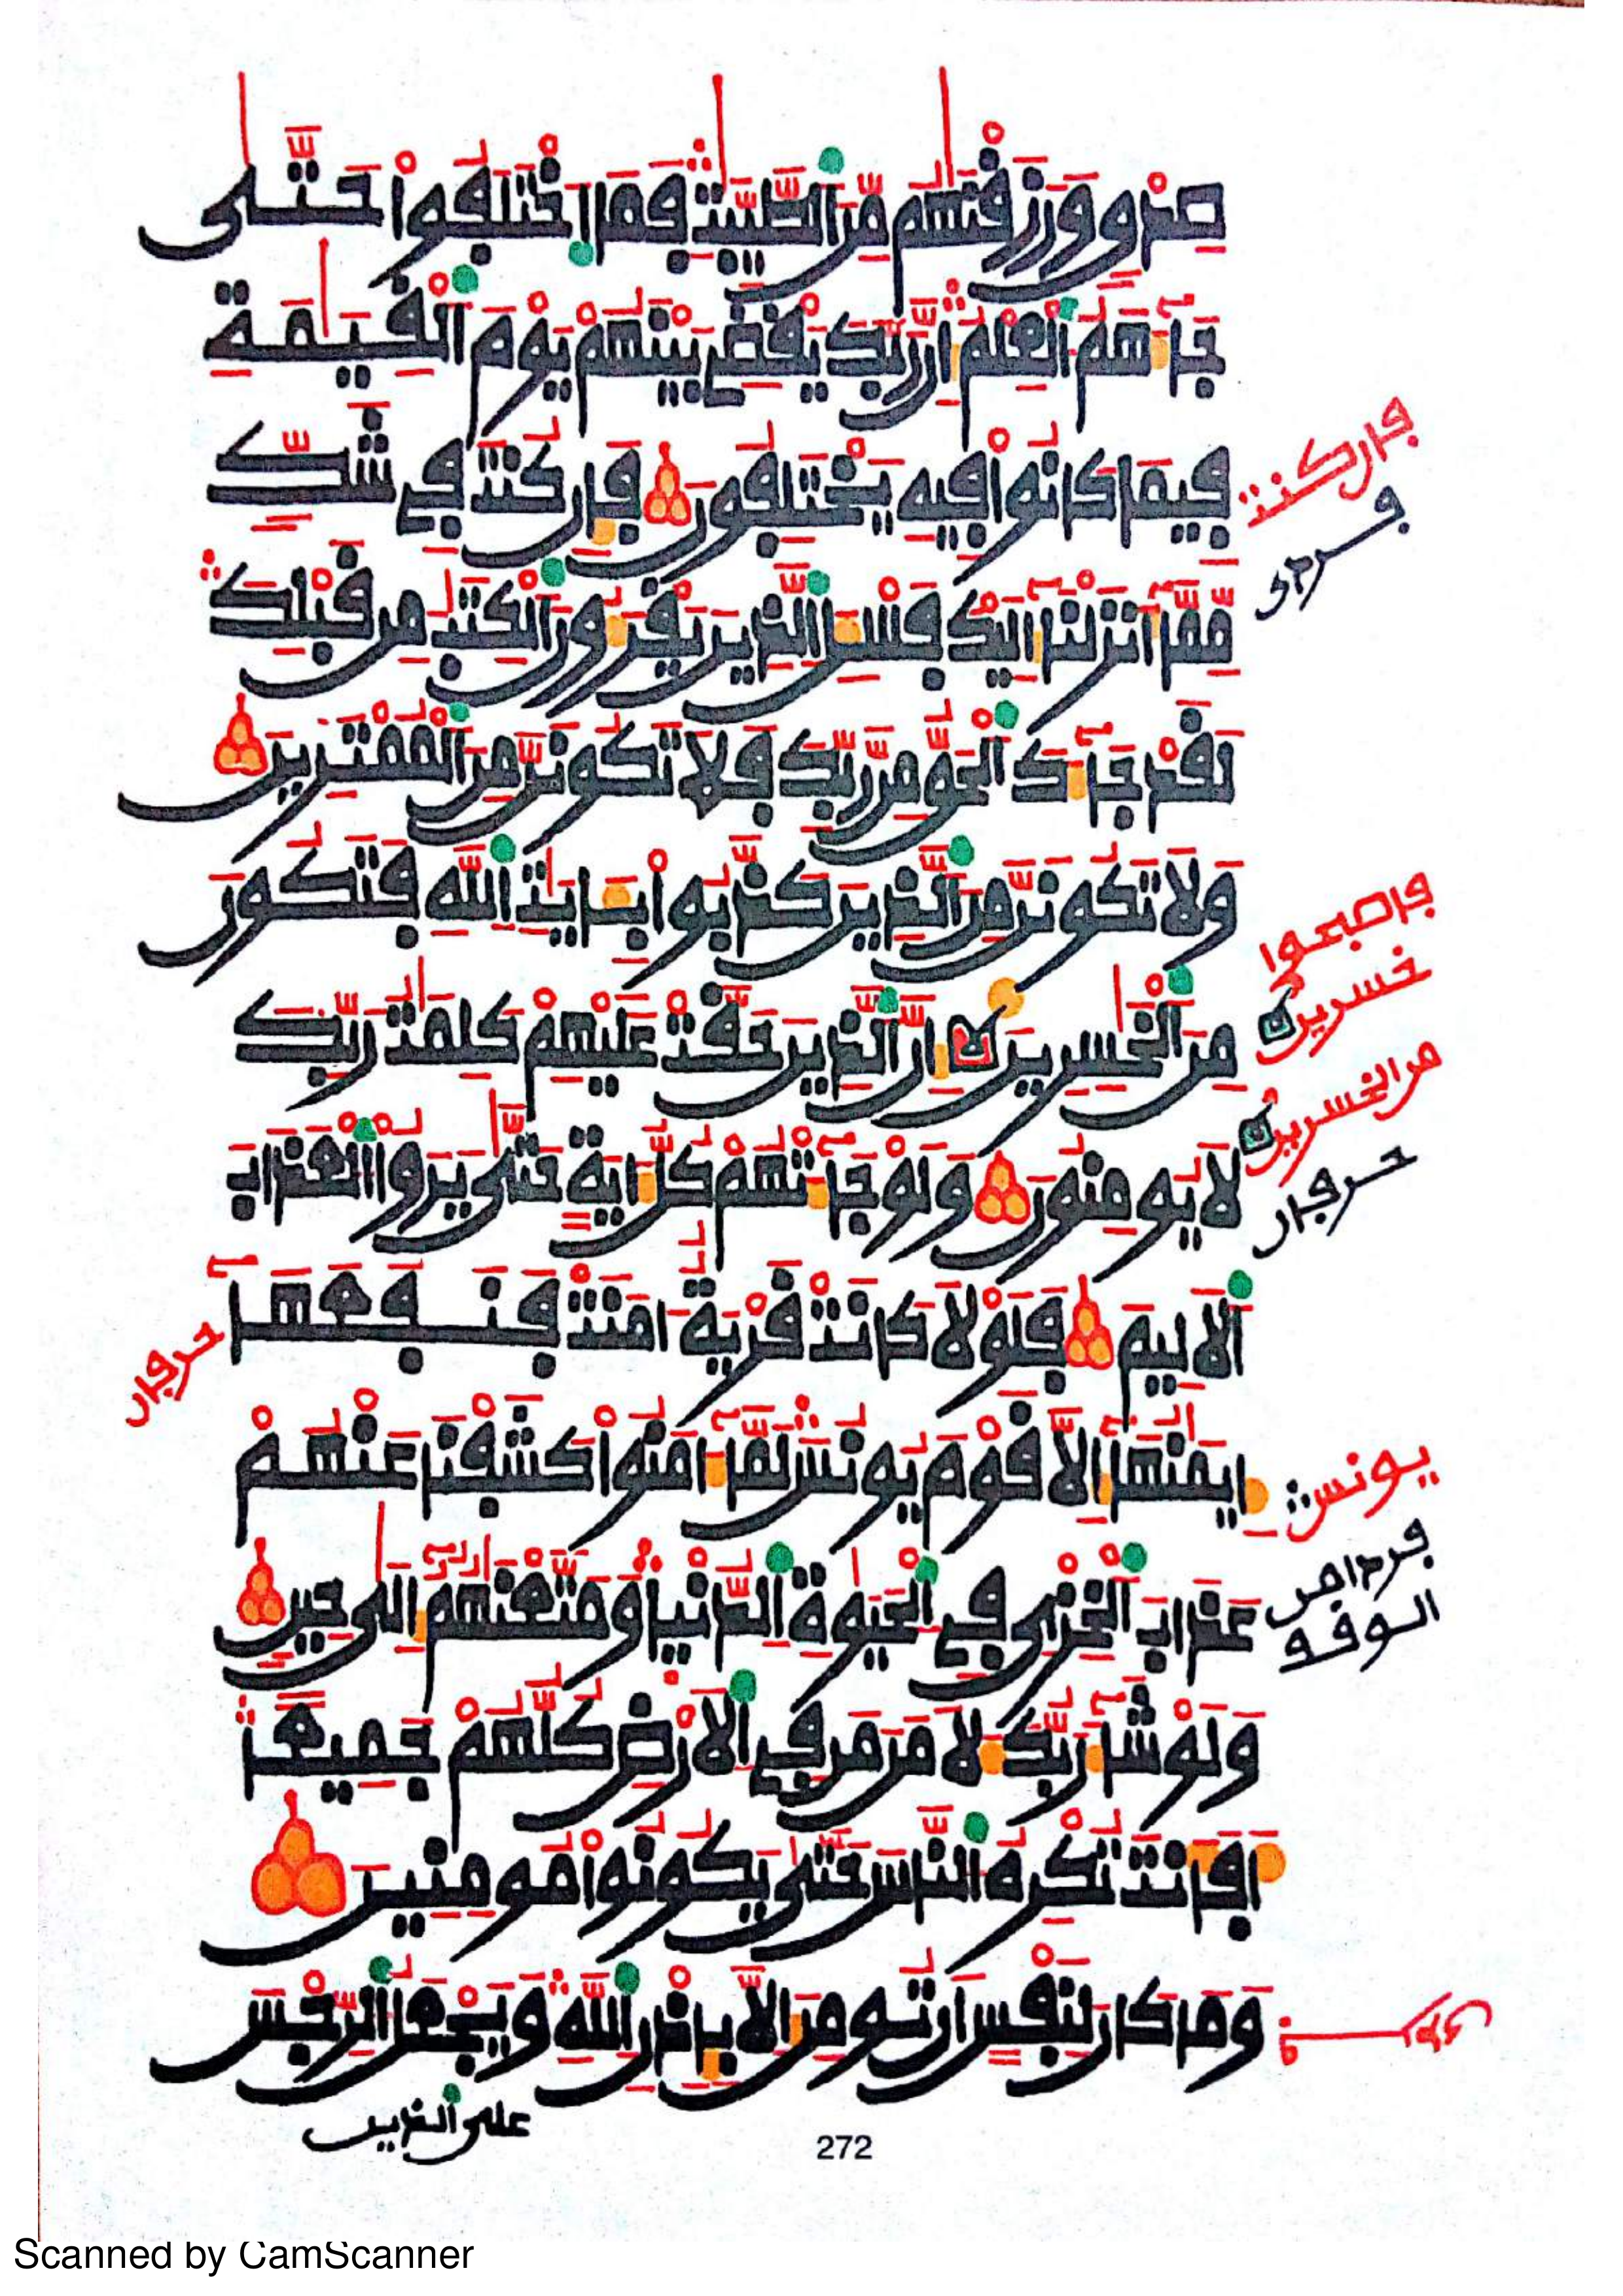 صدق ورزقنهم من الطيبت فما اختلفوا حتى
جاءهم العلم إن ربك يقضى بينهم يوم القيمة
فيما كانوا فيه يختلفون فإن كنت فى شك
مما أنزلنا إليك فسئل الذين يقرءون الكتب من قبلك
لقد جاءك الحق من ربك فلا تكونن من الممترين
ولا تكونن من الذين كذبوا بئايت الله فتكون
من الخسرين إن الذين حقت عليهم كلمت ربك
لا يومنون ولو جاءتهم كل ءاية حتى يروا العذاب
الاليم فلولا كانت قرية امنت فنفعها
إيمنها إلا قوم يونس لما ءامنوا كشفنا عنهم
عذاب الخزى فى الحيوة الدنيا ومتعنهم إلى حين
ولو شاء ربك لأمن من فى الارض كلهم جميعا
أفأنت تكره الناس حتى يكونوا مومنين
وما كان لنفس ان تومن إلا بإذن الله ويجعل الرجس
على الذين
272
فإن كنت
فأصبحوا
خسرين
من الخسرين
يونس
Scanned by CamScanner